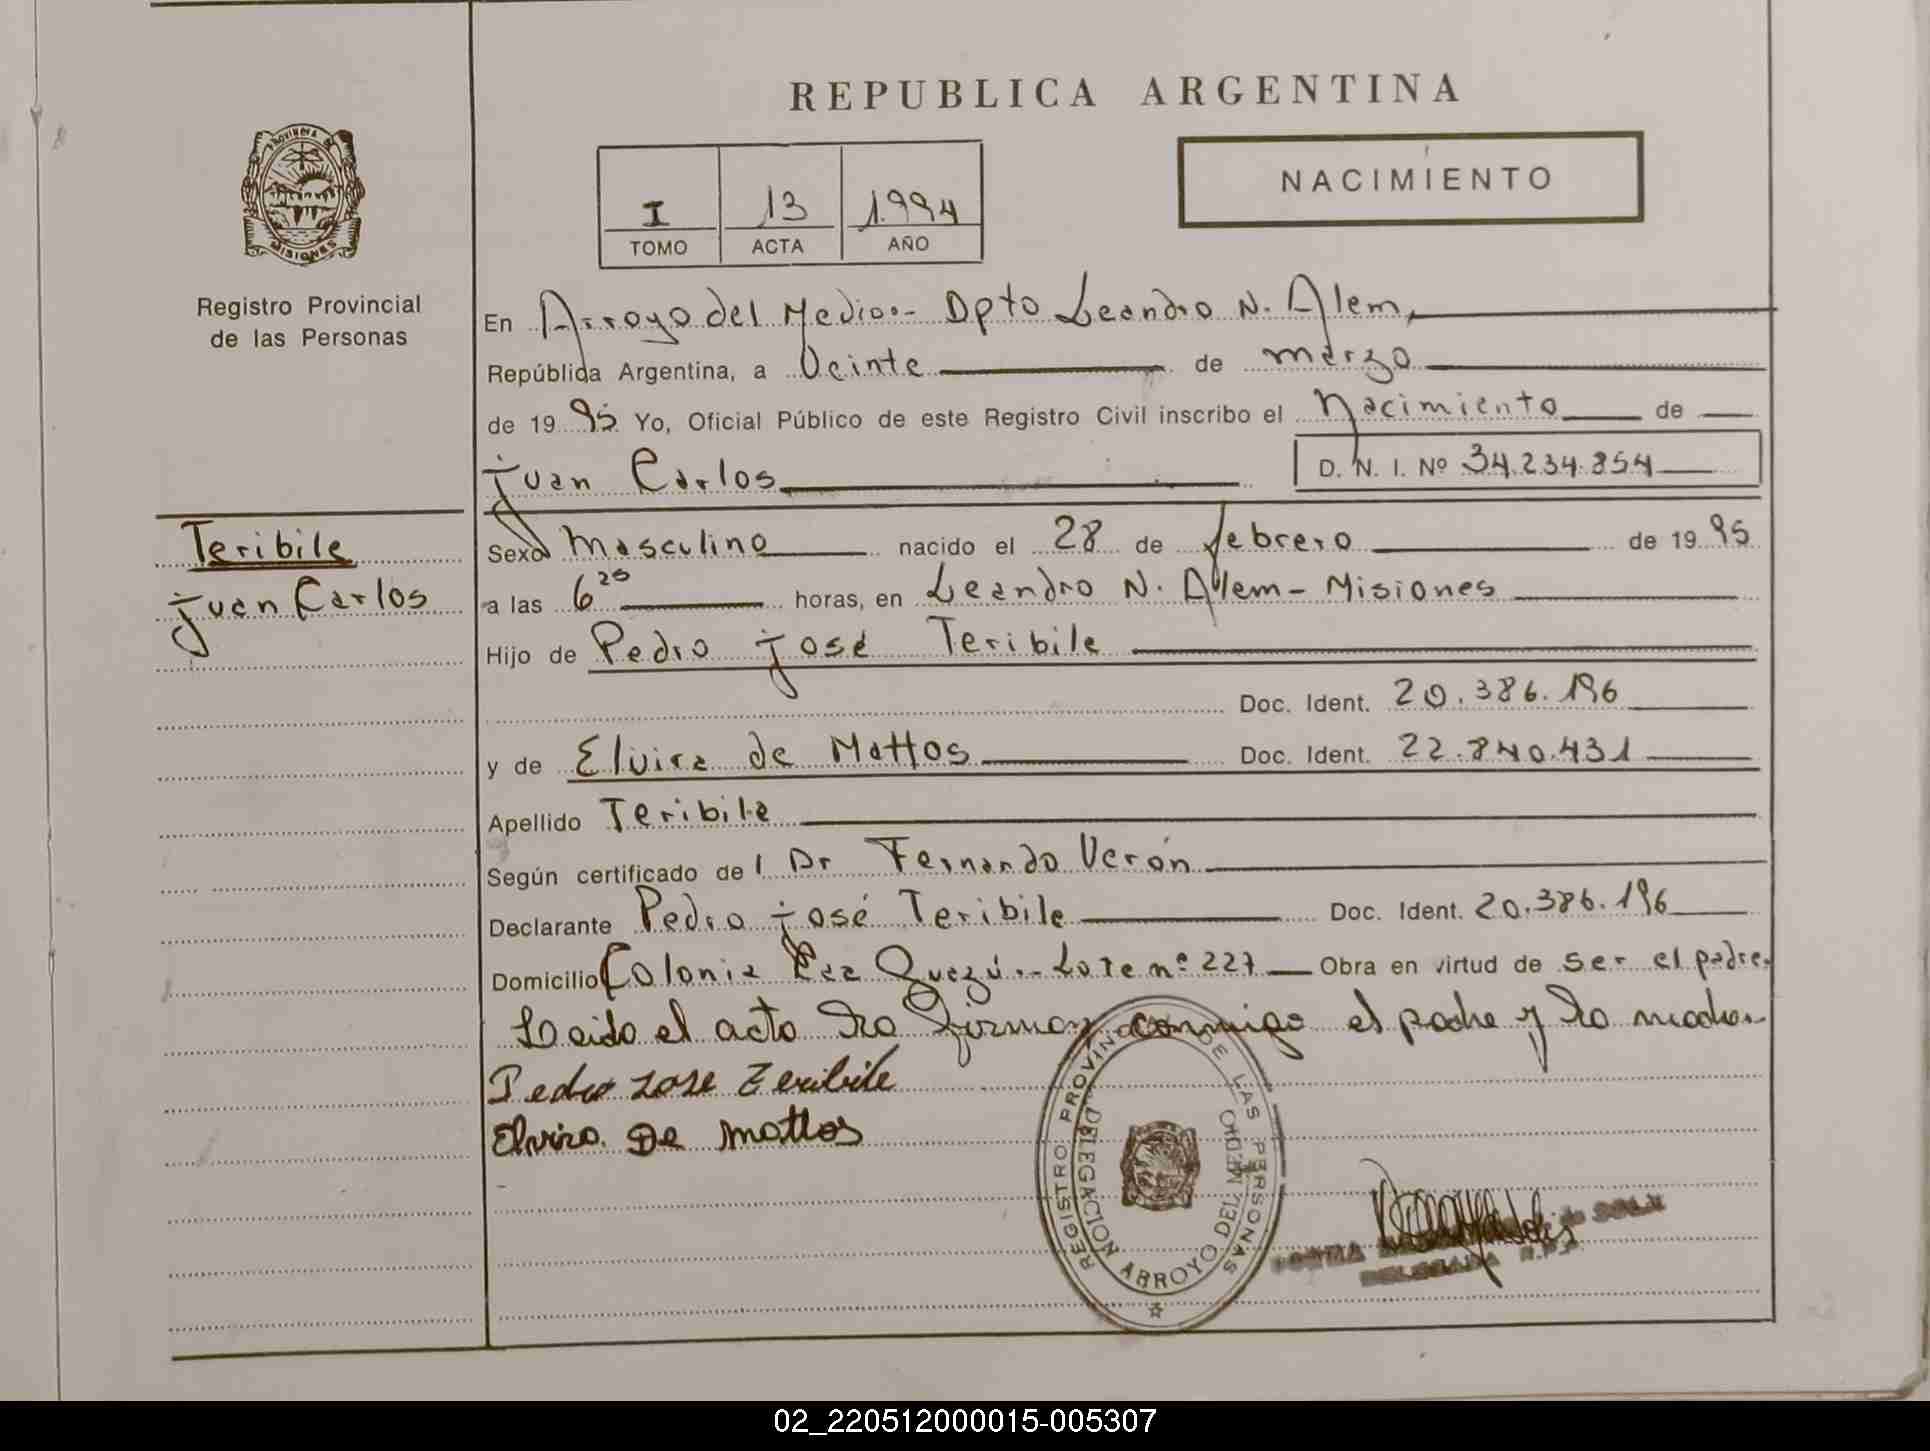 REPUBLICA ARGENTINA
PROVINCIA DE MISIONES
Registro Provincial
de las Personas
I 13 1994
TOMO ACTA AÑO
NACIMIENTO
En Arroyo del Medio.- Dpto Leandro N. Alem,
República Argentina, a Veinte de marzo
de 1995 Yo, Oficial Público de este Registro Civil inscribo el Nacimiento de
Juan Carlos
D. N. I. Nº 34.234.854
Teribile
Juan Carlos
Sexo Masculino nacido el 28 de febrero de 1995
a las 6 25 horas, en Leandro N. Alem - Misiones
Hijo de Pedro José Teribile
Doc. Ident. 20.386.196
y de Elvira de Mattos Doc. Ident. 22.840.431
Apellido Teribile
Según certificado de l Dr Fernando Verón
Declarante Pedro José Teribile Doc. Ident. 20.386.196
Domicilio Colonia Caa Guazú.- Lote nº 227 Obra en virtud de ser el padre.
Leido el acta la firman conmigo el padre y la madre.-
Pedro Jose Teribile
Elvira De Mattos
REGISTRO PROVINCIAL DE LAS PERSONAS
DELEGACION ARROYO DEL MEDIO
DELEGADA R.P.P.
02_220512000015-005307